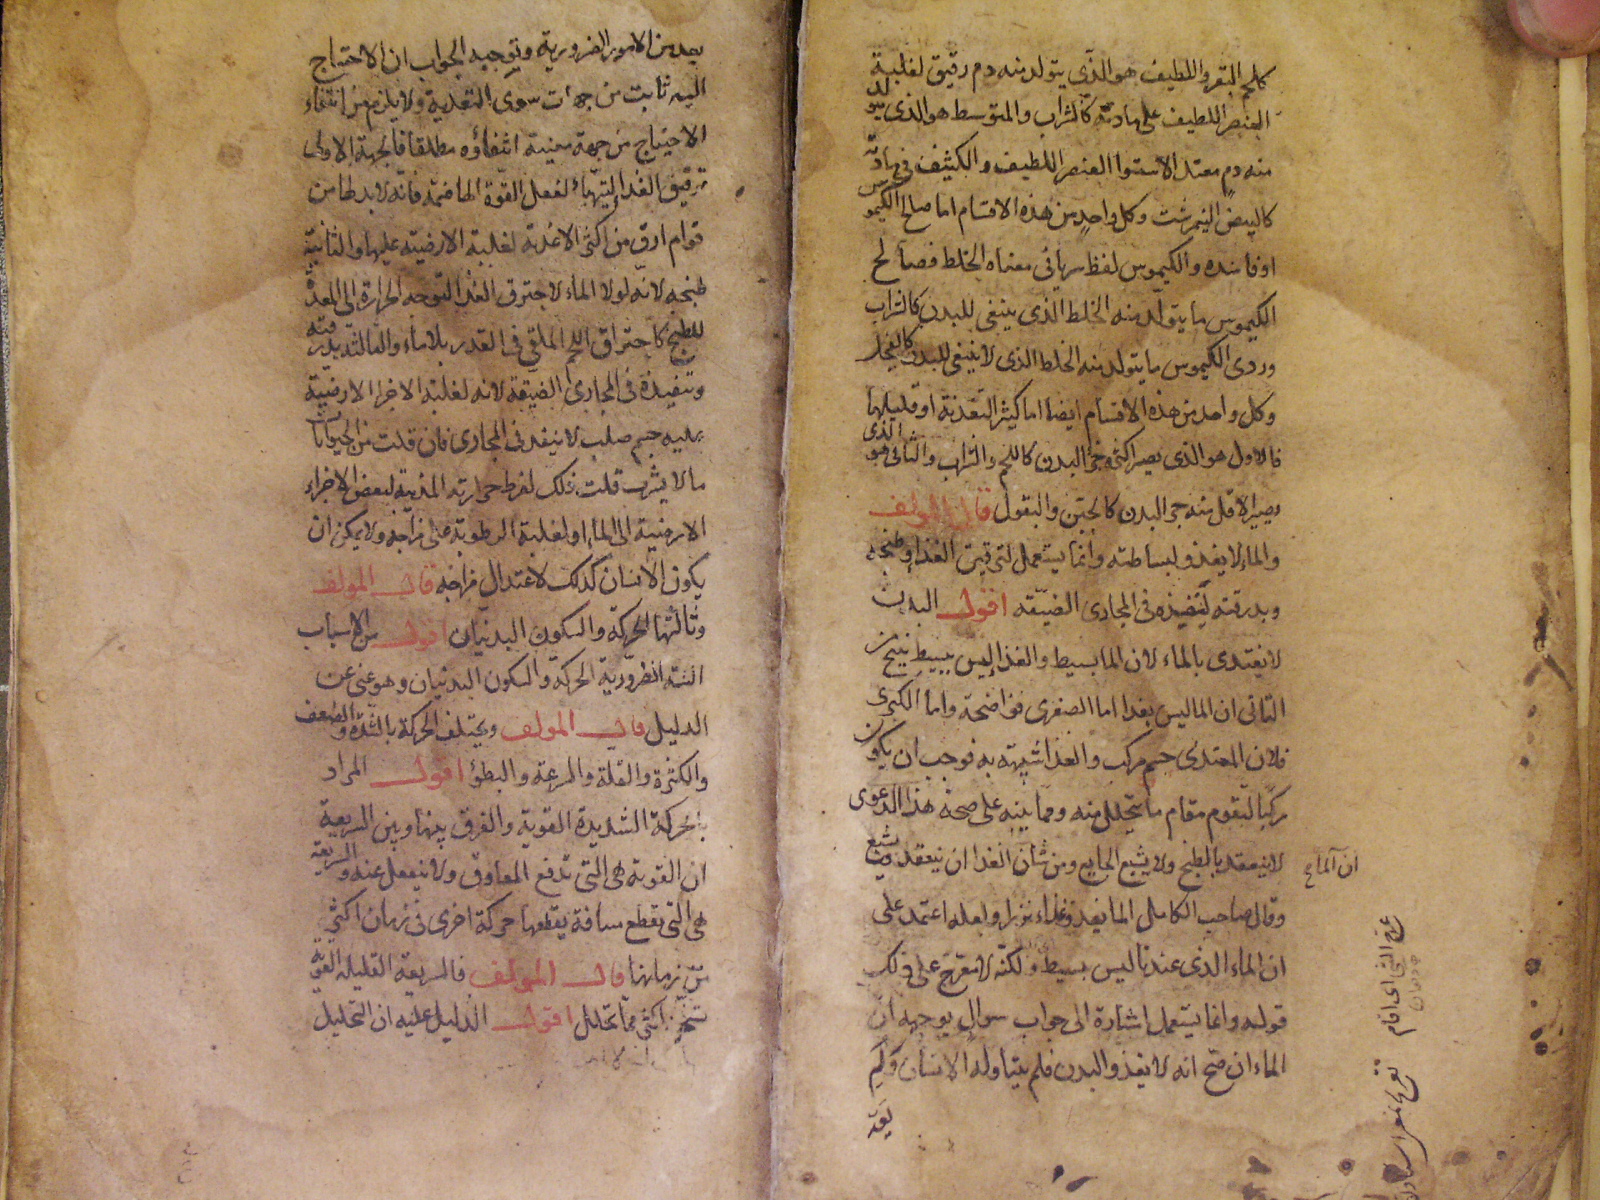 كلحم البقر واللطيف هو الذي يتولد منه دم رقيق لغلبة
العنصر اللطيف على مادته كالشراب والمتوسط هو الذي يتولد
منه دم معتدل لاستواء العنصر اللطيف والكثيف في مادته
كالبيض النيمرشت وكل واحد من هذه الاقسام اما صالح الكيموس
او فاسده والكيموس لفظ سرياني معناه الخلط فصالح
الكيموس ما يتولد منه الخلط الذي ينبغي للبدن كالشراب
وردي الكيموس ما يتولد منه الخلط الذي لا ينبغي للبدن كالفجل
وكل واحد من هذه الاقسام ايضا اما كثير التغذية او قليلها
فالاول هو الذي يصير اكثره جزء البدن كاللحم والشراب والثاني هو الذي
يصير الاقل منه جزء البدن كالجبن والبقول قال المولف
والماء لا يغذو لبساطته وانما يستعمل لترقيق الغذا وطبخه
وبدرقته لتنفيذه في المجاري الضيقه اقول البدن
لا يغتذي بالماء لان الما بسيط والغذا ليس ببسيط ينتج من
الثاني ان الما ليس بغدا اما الصغرى فواضحة واما الكبرى
فلان المغتذي جسم مركب والغذا شبيهة به فوجب ان يكون
مركبا لتقوم مقام ما يتحلل منه ومما ينبه على صحة هذا الدعوى
ان الماء
لا ينعقد بالطبخ ولا يشبع الجايع ومن شان الغدا ان ينعقد ويشبع
وقال صاحب الكامل الما يغذو غذاء نزرا ولعله اعتمد على
ان الماء الذي عندنا ليس ببسيط ولكنه لا تعرج على ذلك
قوله وانما يستعمل اشارة الى جواب سوال يوجهه ان
الماء ان صح انه لا يغذو البدن فلم يتناوله الانسان ولم
يعد
بعد من الامور الضرورية وتوجيه الجواب ان الاحتياج
اليه ثابت من جهات سوى التغذية ولا يلزم من انتفاء
الاحتياج من جهة معينة انتفاؤه مطلقا فالجهة الاولى
ترقيق الغدا ليتهيأ لفعل القوة الهاضمة فانه لا بد لها من
قوام ارق من اكثر الاغذية لغلبة الارضية عليها والثانية
طبخه لانه لولا الماء لاحترق الغذا لتوجه الحرارة الى المعدة
للطبخ كاحتراق اللحم الملقى في القدر بلا ماء والثالثة بدرقته
وتنفيذه في المجاري الضيقة لانه لغلبة الاجزا الارضية
عليه جسم صلب لا ينفد في المجاري فان قلت من الحيوانات
ما لا يشرب قلت ذلك لفرط حرارته المذيبة لبعض الاجزاء
الارضية الى الماء او لغلبة الرطوبة على مزاجه ولا يمكن ان
يكون الانسان كذلك لاعتدال مزاجه قال المولف
وثالثها الحركة والسكون البدنيان اقول من الاسباب
الستة الضرورية الحركة والسكون البدنيان وهو غني عن
الدليل قال المولف ويختلف الحركة بالشدة والضعف
والكثرة والقلة والسرعة والبطؤ اقول المراد
بالحركة الشديدة القوية والفرق بينها وبين السريعة
ان القوية هي التي تدفع المعاوق ولا ينفعل عنه والسريعة
هي التي تقطع مسافة يقطعها حركة اخرى في زمان اكثر
من زمانها قال المولف فالسريعة القليلة القوية
تسخن اكثر مما تحلل اقول الدليل عليه ان التحليل